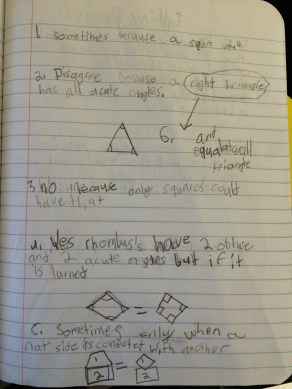 1. sometimes because a
2. Disagree because a right triangle
has all acute angles.
6. and
equalaterall
triangle
3. no because only squares could
have that
4. Yes rhombus's have 2 obtuse
and 2 acute angles but if it
is turned
=
5. Sometimes only when a
not side is conected with another
1 = 1
2 2